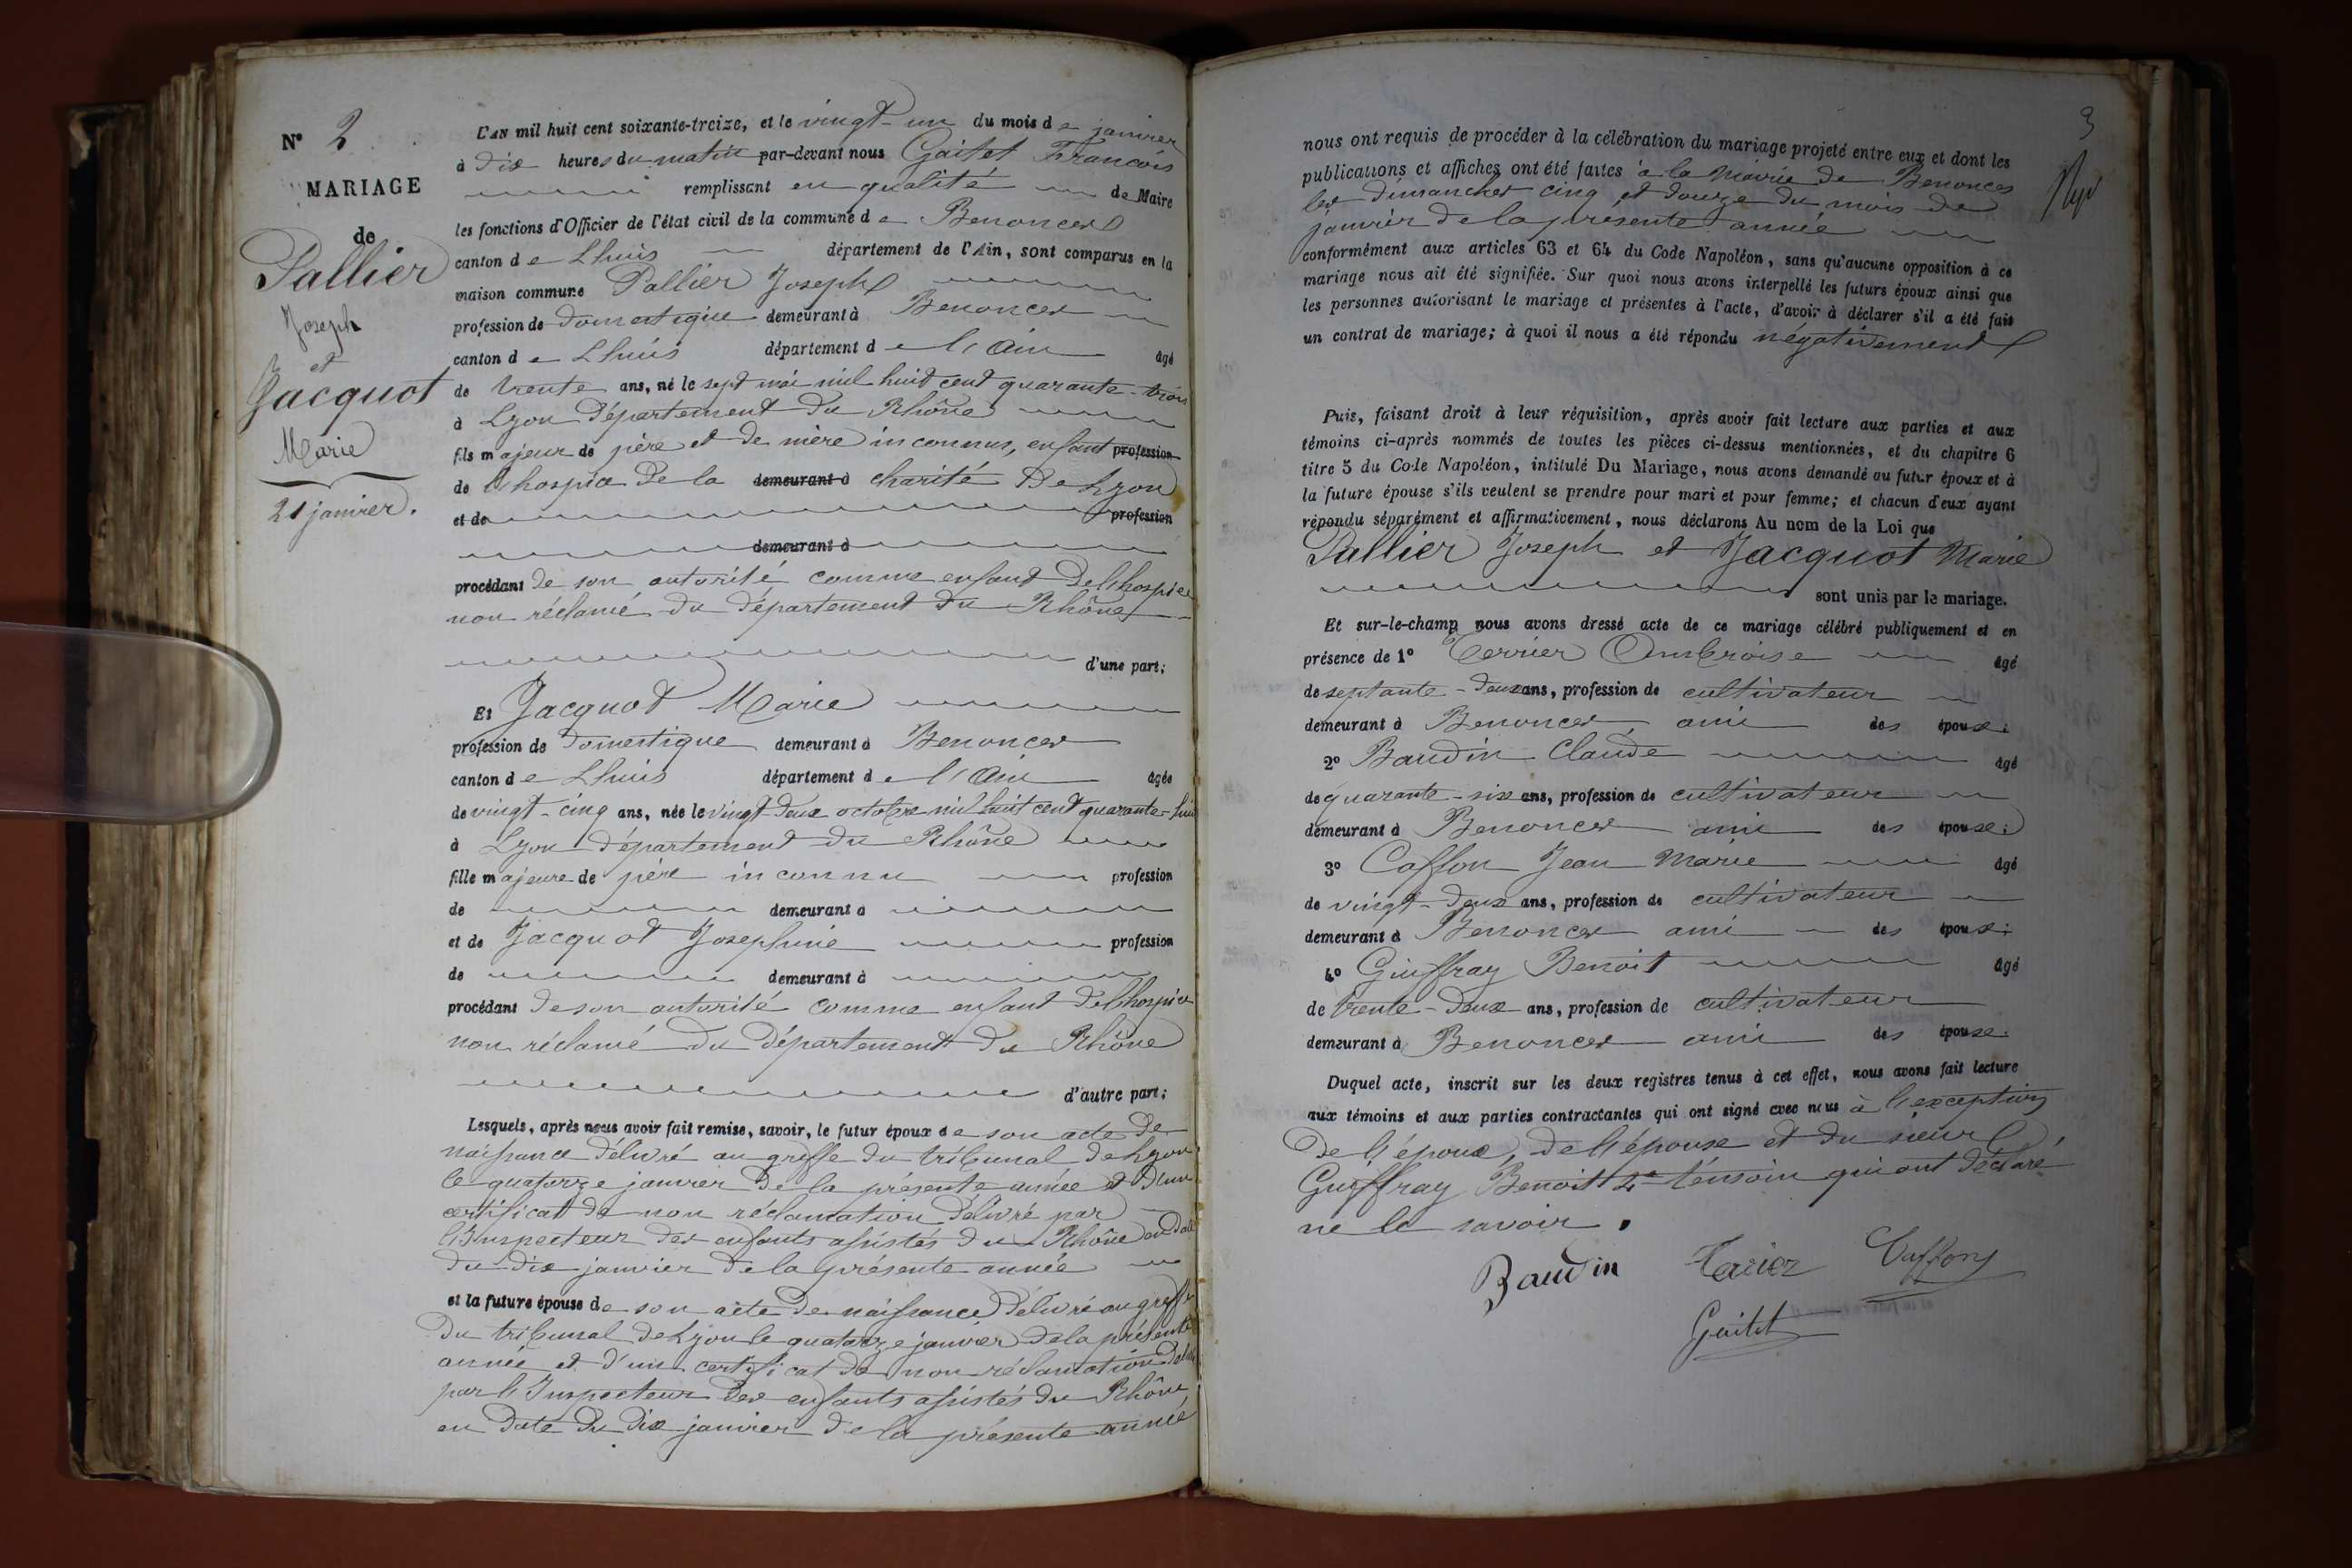 N° 2
MARIAGE
de
Pallier
Joseph
et
Jacquot
Marie
21 janvier.
L'AN mil huit cent soixante-treize, et le vingt-un du mois de janvier
à dix heures du matin par-devant nous Gaitet François
remplissant en qualité de Maire
les fonctions d'Officier de l'état civil de la commune de Benonces
canton de Lhuis département de l'Ain, sont comparus en la
maison commune Pallier Joseph
profession de domestique demeurant à Benonces
canton de Lhuis département de l'Ain âgé
de trente ans, né le sept mai mil huit cent quarante-trois
à Lyon département du Rhône
fils majeur de père et de mère inconnus, enfant profession
de l'hospice de la demeurant à charité de Lyon
et de profession
demeurant à
procédant de son autorité comme enfant de l'hospice
non réclamé du département du Rhône
d'une part;
Et Jacquot Marie
profession de domestique demeurant à Benonces
canton de Lhuis département de l'Ain âgée
de vingt-cinq ans, née le vingt-deux octobre mil huit cent quarante-huit
à Lyon département du Rhône
fille majeure de père inconnu profession
de demeurant à
et de Jacquot Josephine profession
de demeurant à
procédant de son autorité comme enfant de l'hospice
non réclamé du département du Rhône
d'autre part;
Lesquels, après nous avoir fait remise, savoir, le futur époux de son acte de
naissance délivré au greffe du tribunal de Lyon
le quatorze janvier de la présente année et d'un
certificat de non réclamation délivré par
l'Inspecteur des enfants assistés du Rhône en date
du dix janvier de la présente année
et la future épouse de son acte de naissance délivré au greffe
du tribunal de Lyon le quatorze janvier de la présente
année et d'un certificat de non réclamation délivré
par l'Inspecteur des enfants assistés du Rhône,
en date du dix janvier de la présente année
3
nous ont requis de procéder à la célébration du mariage projeté entre eux et dont les
publications et affiches ont été faites à la Mairie de Benonces
les dimanches cinq et douze du mois de
janvier de la présente année
conformément aux articles 63 et 64 du Code Napoléon, sans qu'aucune opposition à ce
mariage nous ait été signifiée. Sur quoi nous avons interpellé les futurs époux ainsi que
les personnes autorisant le mariage et présentes à l'acte, d'avoir à déclarer s'il a été fait
un contrat de mariage; à quoi il nous a été répondu négativement
Puis, faisant droit à leur réquisition, après avoir fait lecture aux parties et aux
témoins ci-après nommés de toutes les pièces ci-dessus mentionnées, et du chapitre 6
titre 5 du Code Napoléon, intitulé Du Mariage, nous avons demandé au futur époux et à
la future épouse s'ils veulent se prendre pour mari et pour femme; et chacun d'eux ayant
répondu séparément et affirmativement, nous déclarons Au nom de la Loi que
Pallier Joseph et Jacquot Marie
sont unis par le mariage.
Et sur-le-champ nous avons dressé acte de ce mariage célébré publiquement et en
présence de 1° Terrier Ambroise âgé
de septante-deux ans, profession de cultivateur
demeurant à Benonces ami des époux.
2° Baudin Claude âgé
de quarante-six ans, profession de cultivateur
demeurant à Benonces ami des époux.
3° Caffon Jean Marie âgé
de vingt-deux ans, profession de cultivateur
demeurant à Benonces ami des époux.
4° Guiffray Benoit âgé
de trente-deux ans, profession de cultivateur
demeurant à Benonces ami des époux.
Duquel acte, inscrit sur les deux registres tenus à cet effet, nous avons fait lecture
aux témoins et aux parties contractantes qui ont signé avec nous à l'exception
de l'époux, de l'épouse et du sieur
Guiffray Benoit 4e témoin qui ont déclaré
ne le savoir.
Baudin Terrier Caffon
Gaitet